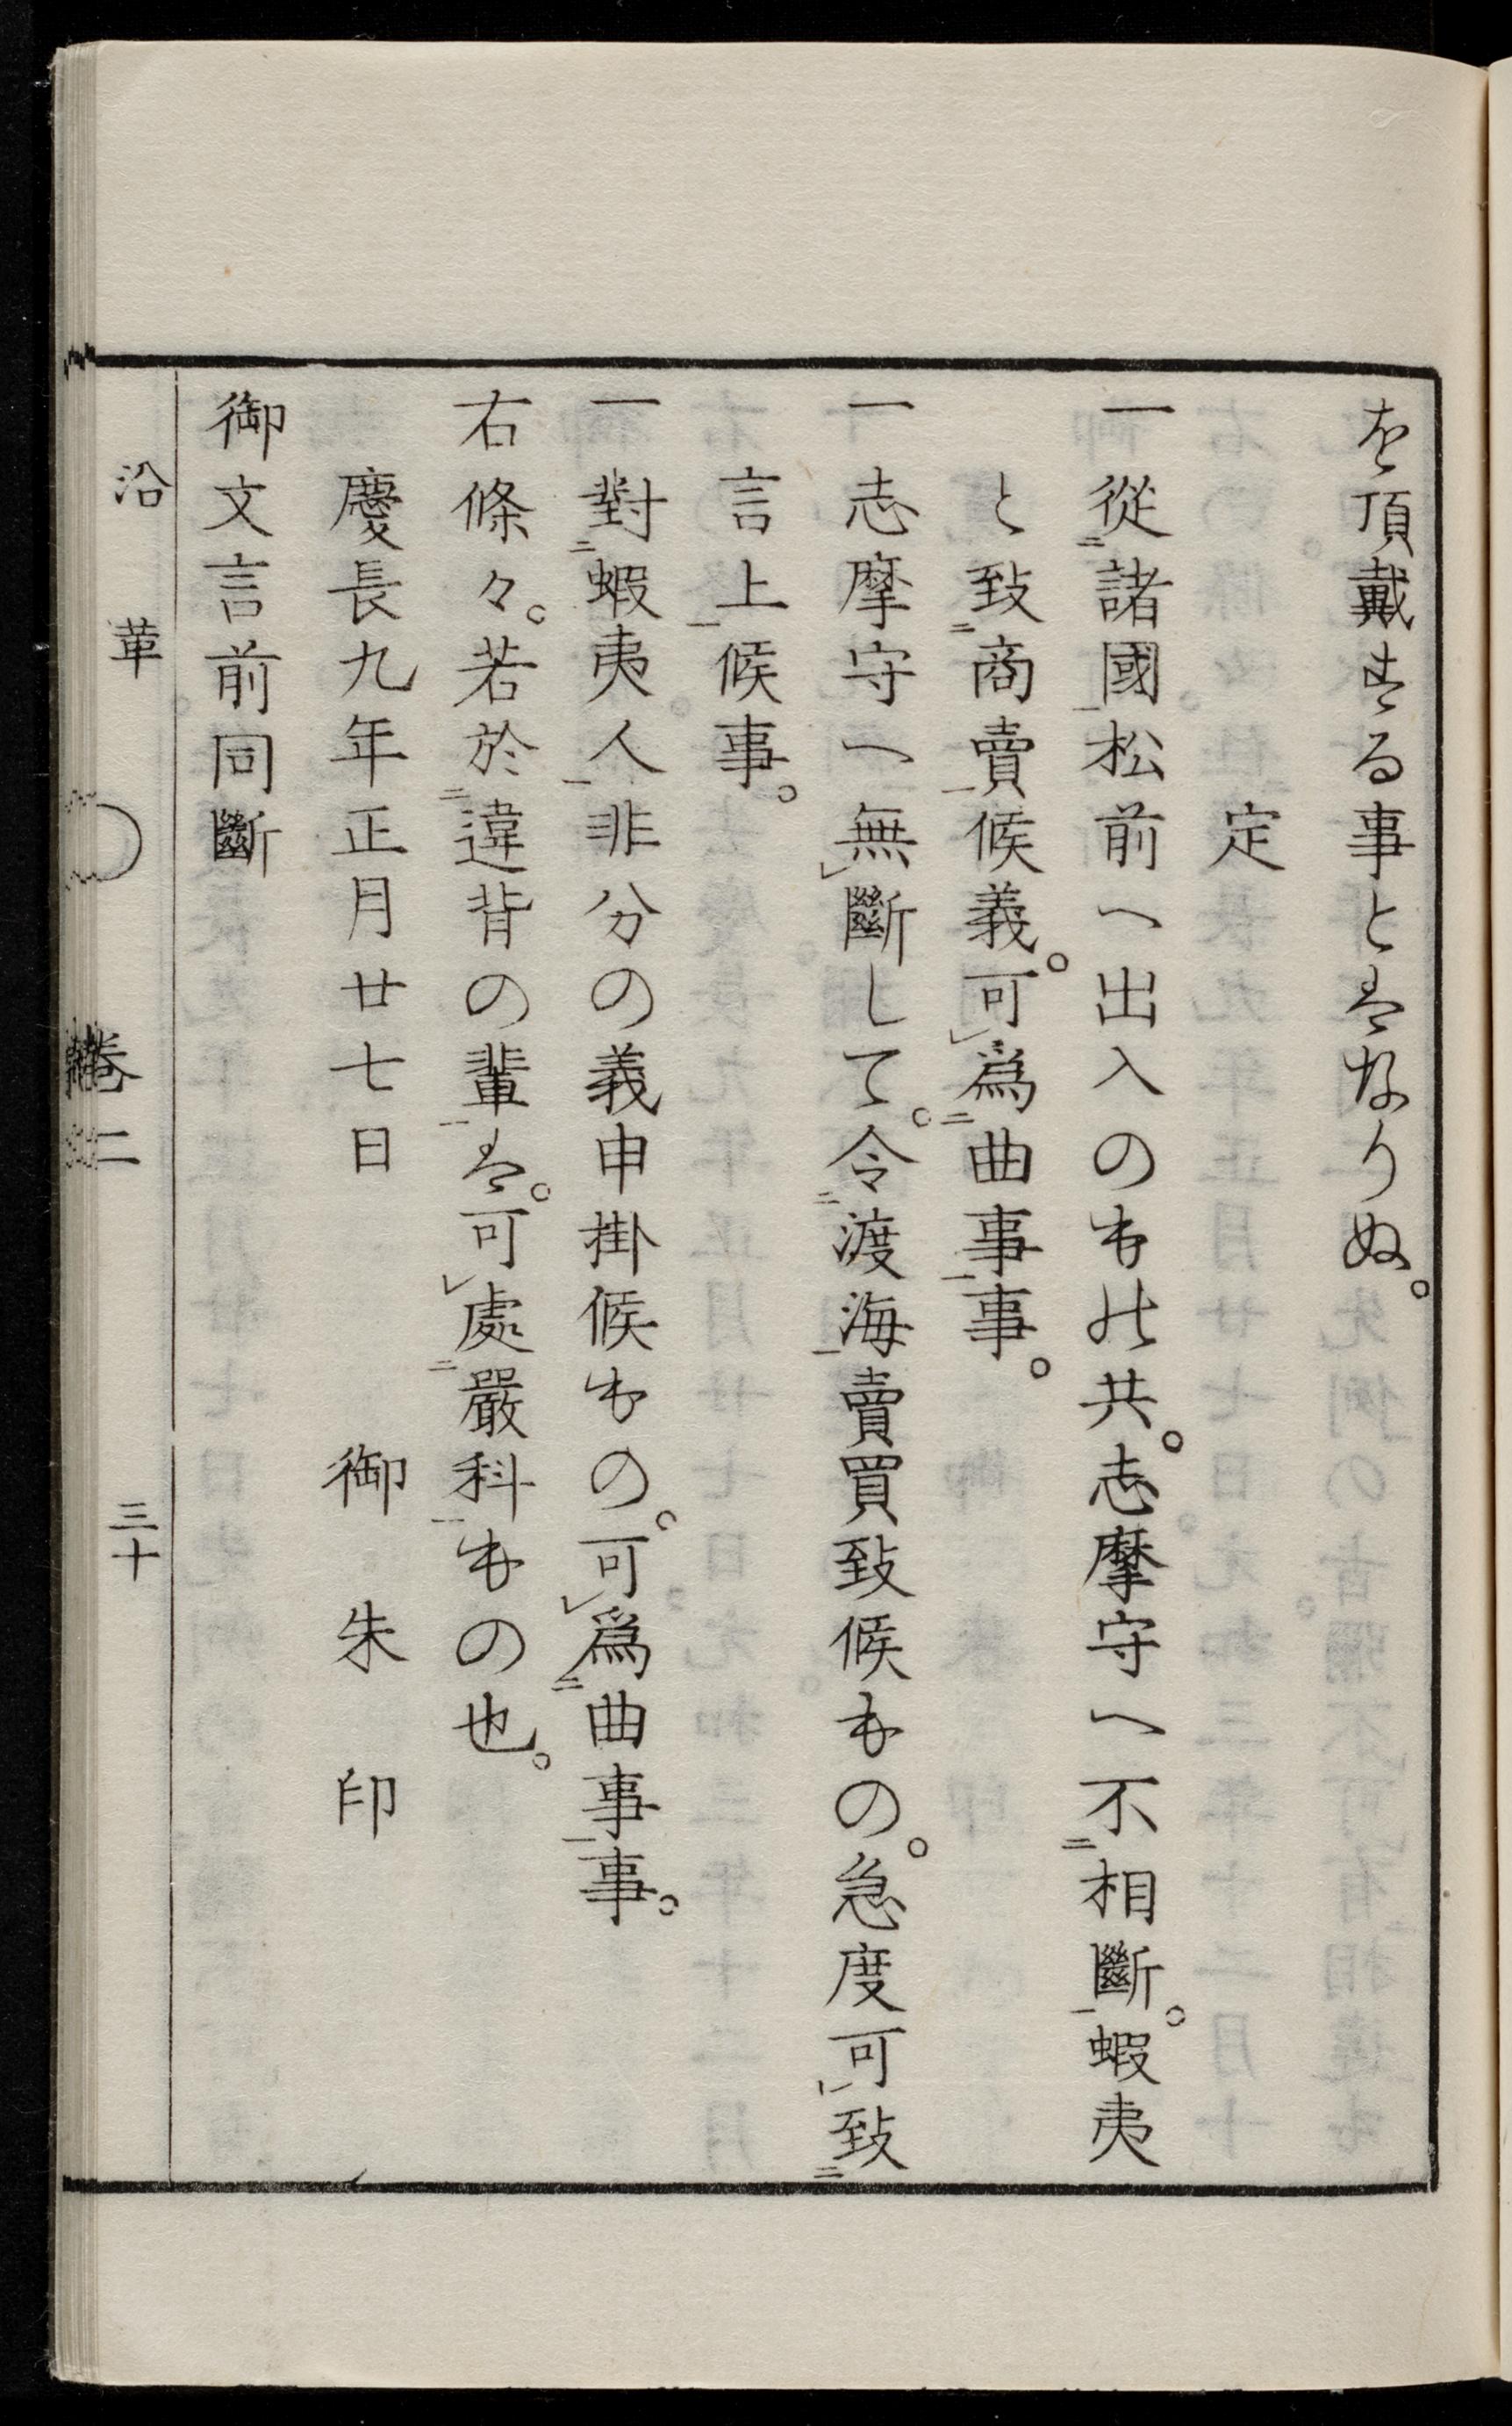 を頂戴する事とはなりぬ。
定
一從諸國松前へ出入のもの共。志摩守へ不相斷。蝦夷
と致商賣候義。可爲曲事事。
一志摩守へ無斷して。令渡海賣買致候もの。急度可致
言上候事。
一對蝦夷人非分の義申掛候もの。可爲曲事事。
右條々。若於違背の輩は。可處嚴科もの也。
慶長九年正月廿七日　御朱印
御文言前同斷
沿革　卷二　三十